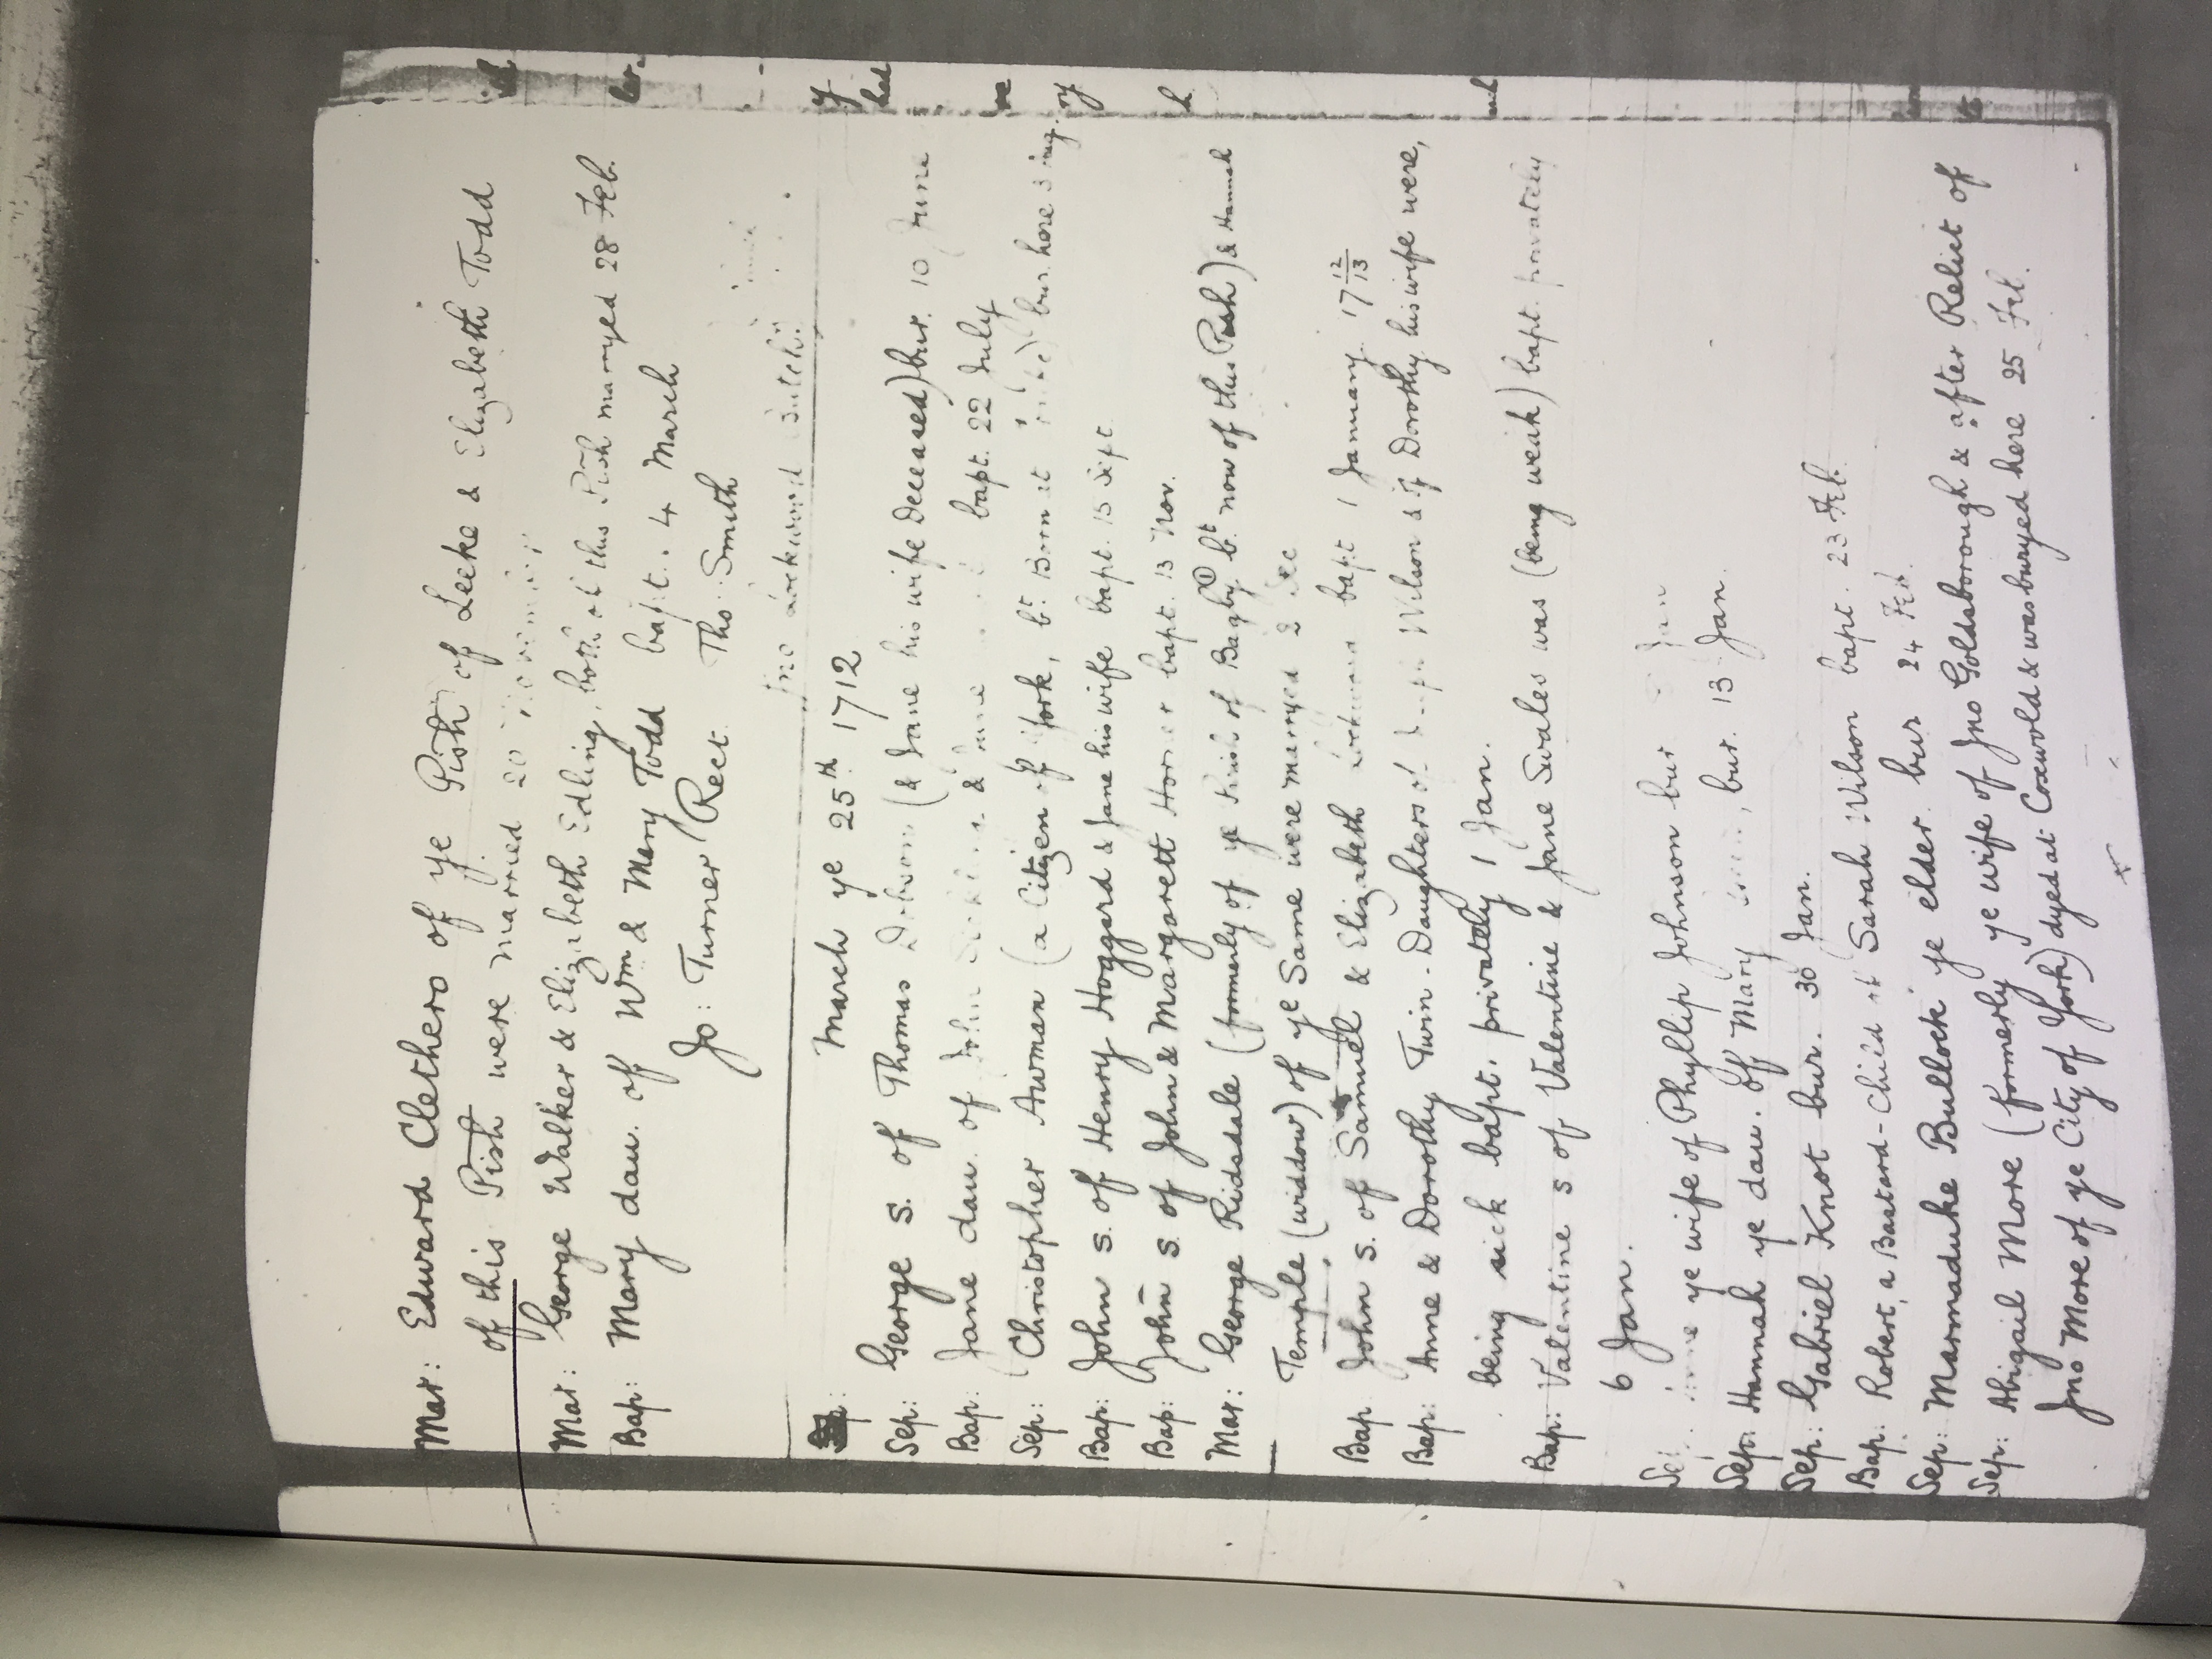 Mar: Edward Clethero of ye Pish of Leeke & Elizabeth Todd
of this Pish were married 20
Mar: George Walker & Elizabeth Edling, both of this Pish marryed 28 Feb.
Bap: Mary dau. of Wm & Mary Todd bapt. 4 March
Jo: Turner Rect. Tho: Smith
Jno
March ye 25th 1712
Sep: George s. of Thomas (& Jane his wife Deceased) bur. 10 June
Bap: Jane dau. of John & bapt. 22 July
Sep: Christopher Awman (a Citizen of York, bt. Born at) bur. here 3
Bap: John s. of Henry Hoggard & Jane his wife bapt. 15 Sept.
Bap: John s. of John & Margorett Horner bapt. 13 Nov.
Mar: George Ridsdale (formerly of ye Pish of Bagby bt. now of this Pish) & Hannah
Temple (widdow) of ye Same were marryed 2 Dec
Bap John s. of Samuel & Elizabeth bapt 1 January 17 12/13
Bap: Anne & Dorothy Twin-Daughters of Wilson & of Dorothy his wife were,
being sick bapt. privately 1 Jan.
Bap: Valentine s of Valentine & Jane Swales was (being weak) bapt. privately
6 Jan.
ye wife of Phyllip Johnson bur Jan
Sep: Hannah ye dau. of Mary , bur. 13 Jan.
Sep: Gabriel Knot bur. 30 Jan.
Bap: Robert, a Bastard-Child of Sarah Wilson bapt. 23 Feb.
Sep: Marmaduke Bullock ye elder bur 24 Feb.
Sep: Abigail More (formerly ye wife of Jno Goldsborough & after Relict of
Jno More of ye City of York) dyed at Coxwold & was buryed here 25 Feb.